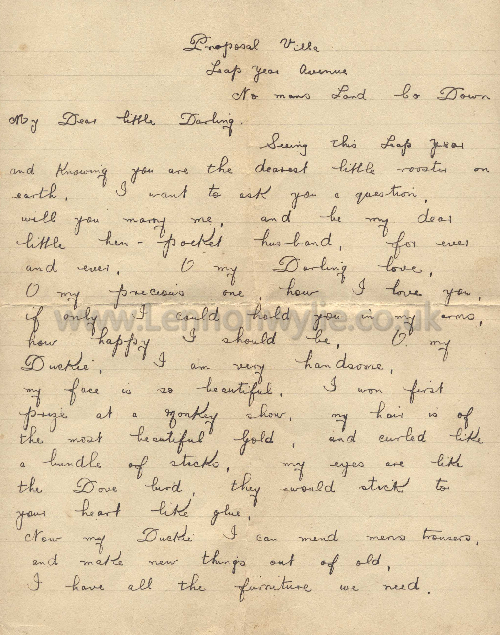 Proposal Villa
Leap Year Avenue
No mans Land Co Down
My Dear little Darling.
Seeing this Leap Year
and Knowing you are the dearest little rooster on
earth, I want to ask you a question,
will you marry me, and be my dear
little hen-pocket husband, for ever
and ever, O my Darling love,
O my precious one how I love you,
if only I could hold you in my arms,
how happy I should be, O my
Duckie, I am very handsome,
my face is so beautiful, I won first
prize at a monkey show, my hair is of
the most beautiful Gold, and curled like
a bundle of sticks, my eyes are like
the Dove bird, they would stick to
your heart like glue,
Now my Duckie I can mend mens trousers,
and make new things out of old,
I have all the furniture we need.
www.Lennonwylie.co.uk